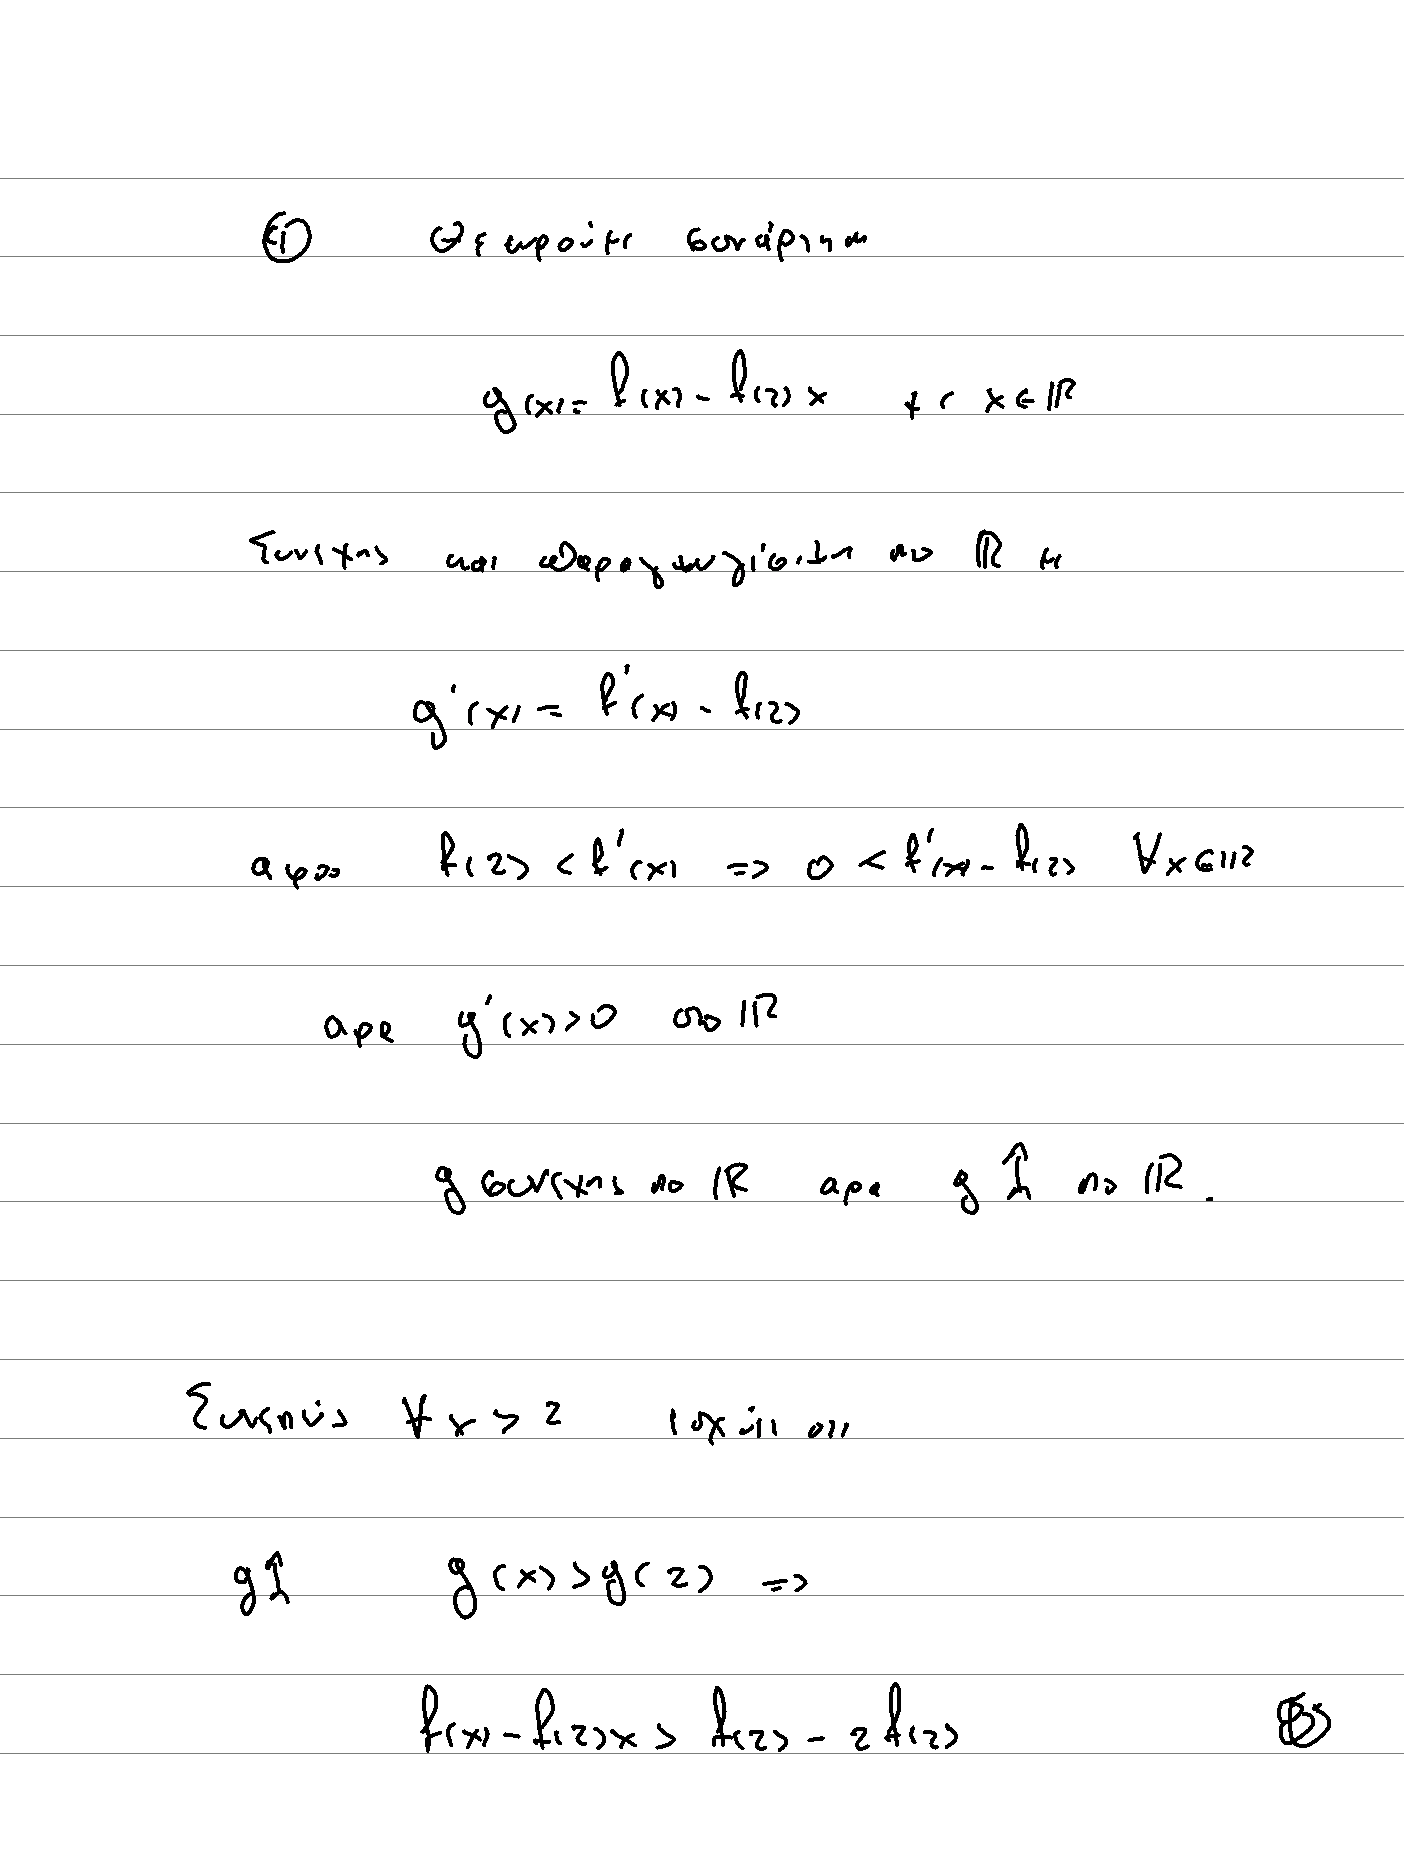 (i) Θεωρούμε συνάρτηση
g(x) = f(x) - f(2)x με x ∈ ℝ
Συνεχης και παραγωγίσιμη στο ℝ με
g'(x) = f'(x) - f(2)
αφου f(2) < f'(x) => 0 < f'(x) - f(2) ∀x∈ℝ
αρα g'(x) > 0 στο ℝ
g συνεχης στο ℝ αρα g ↑ στο ℝ.
Συνεπώς ∀x > 2 ισχύει οτι
g↑ g(x) > g(2) =>
f(x) - f(2)x > f(2) - 2f(2)